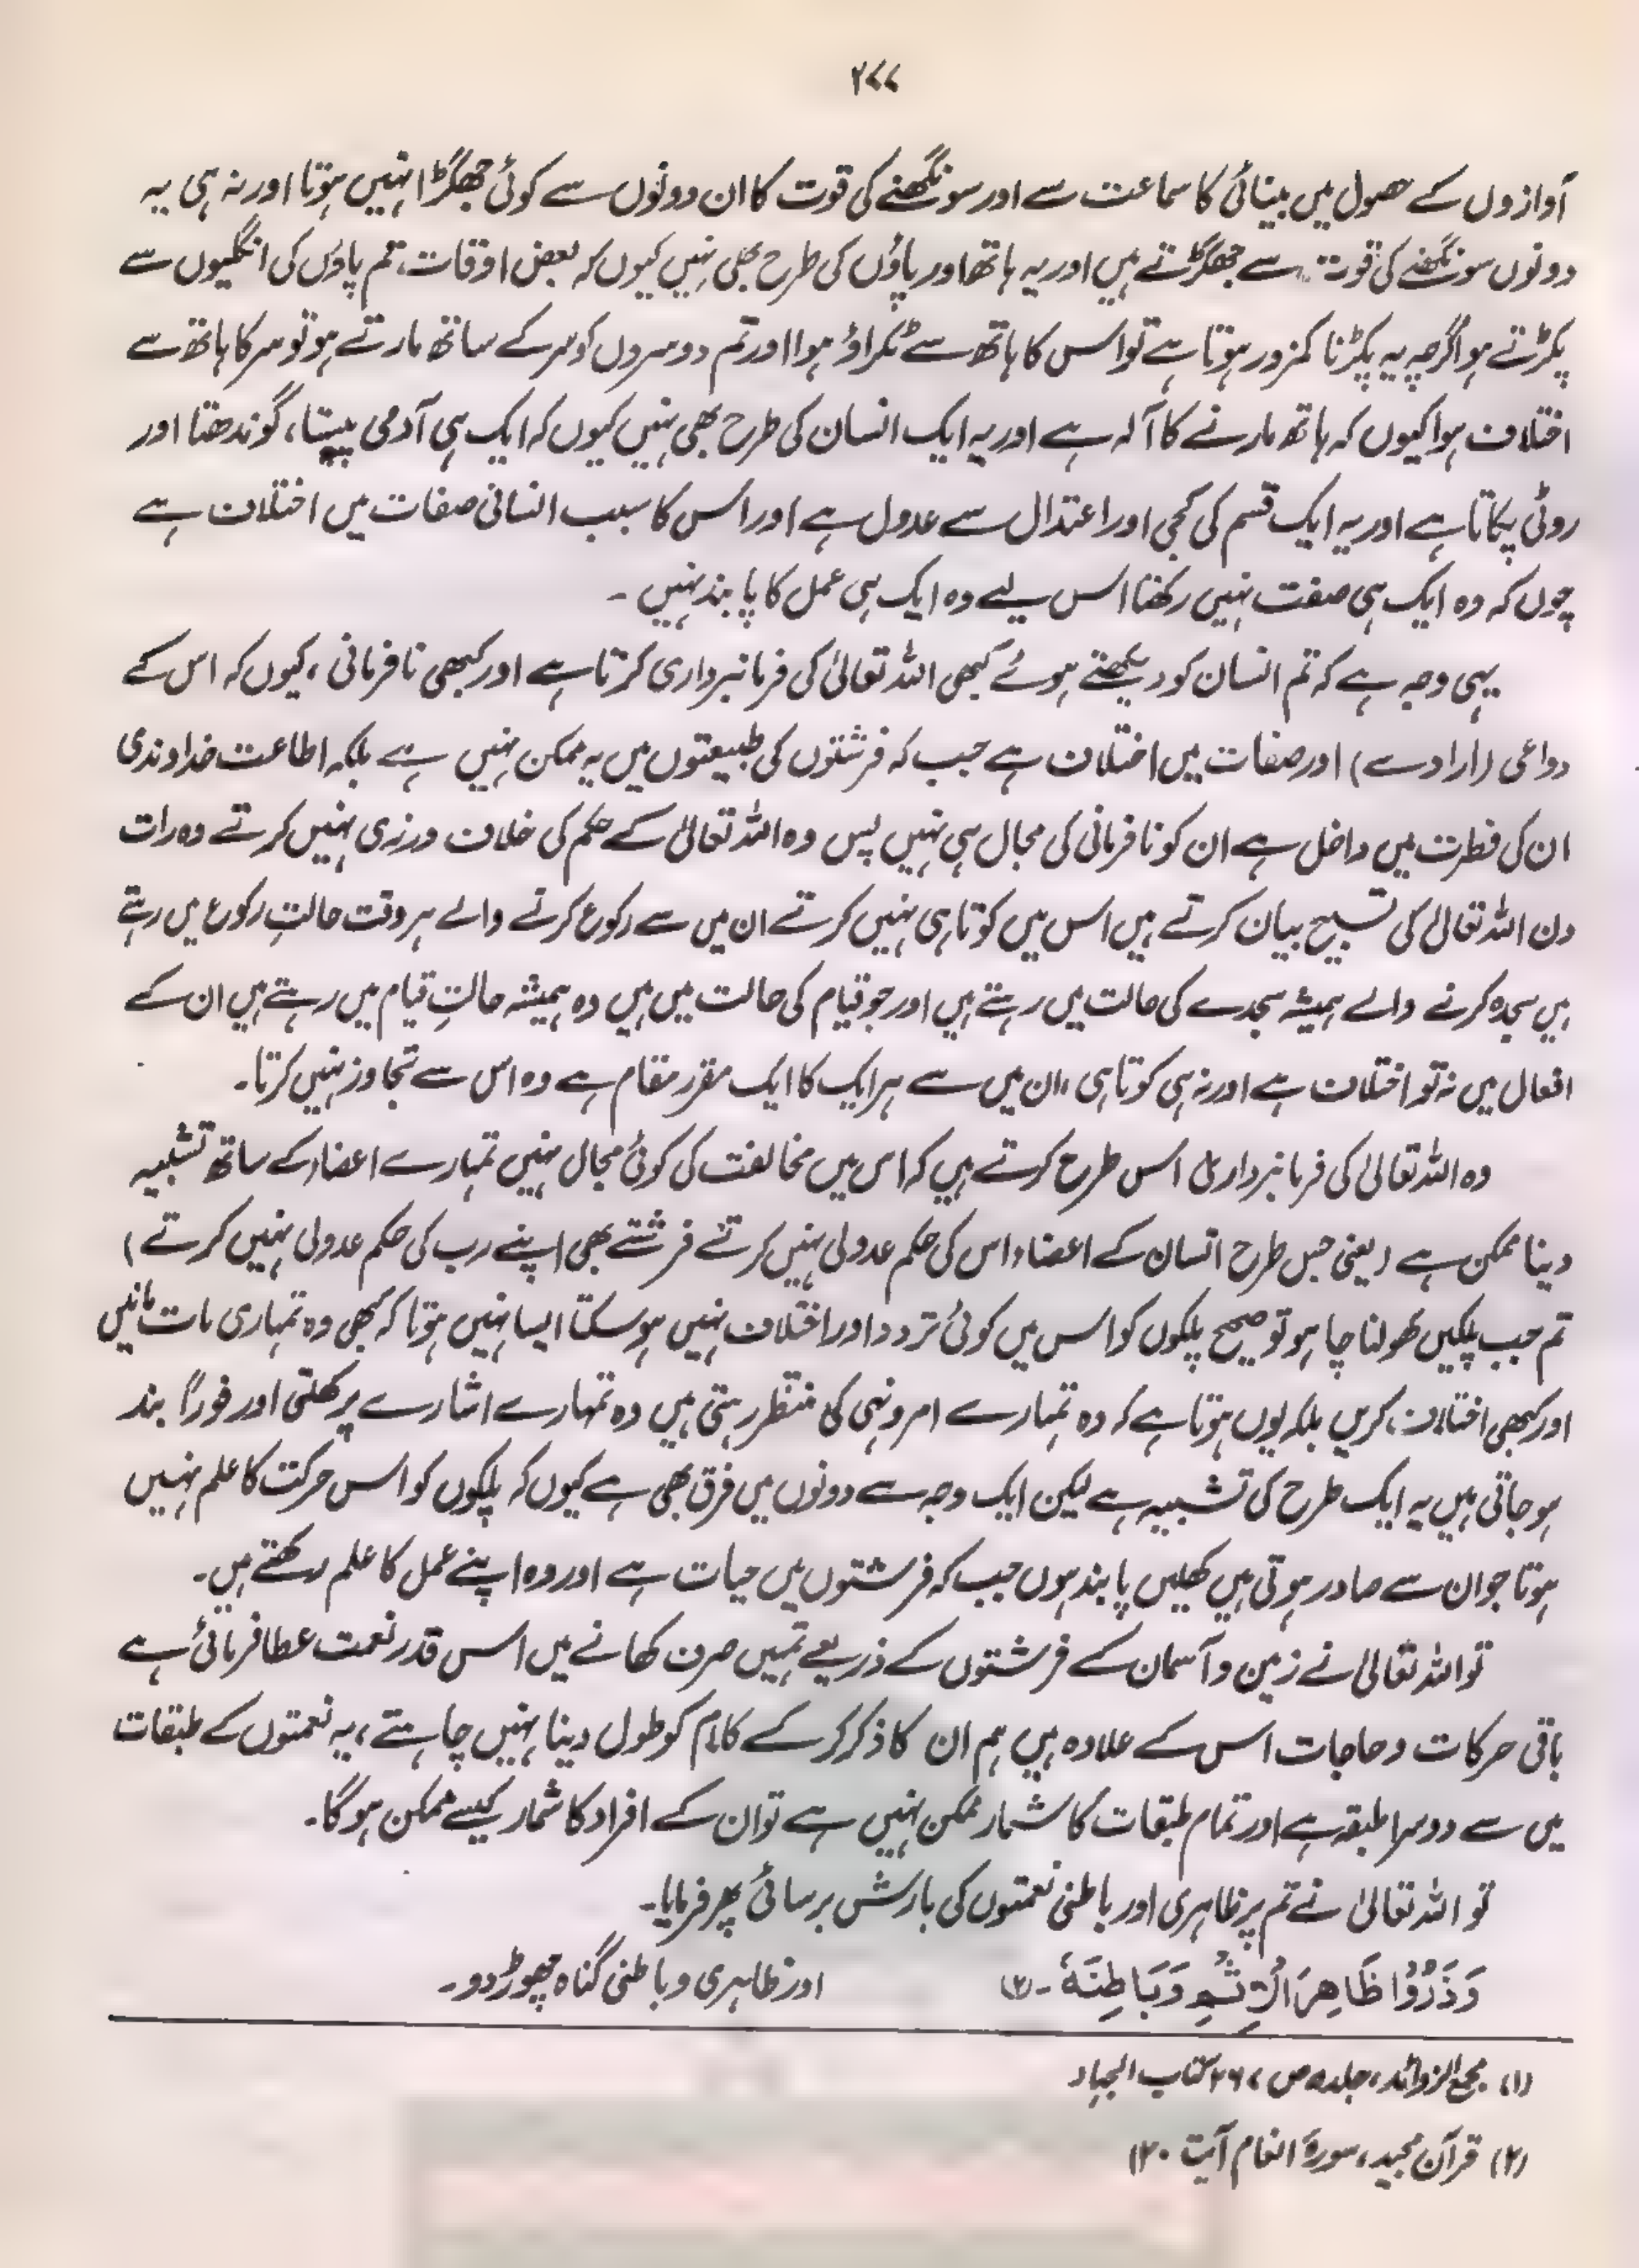 ۲۷۷
آوازوں کے حصول میں بینائی کا سماعت سے اور سونگھنے کی قوت کا ان دونوں سے کوئی جھگڑا نہیں ہوتا اور نہ ہی یہ
دونوں سونگھنے کی قوت سے جھگڑتے ہیں اور یہ ہاتھ اور پاؤں کی طرح بھی نہیں کیوں کہ بعض اوقات تم پاؤں کی انگلیوں سے
پکڑتے ہو اگرچہ یہ پکڑنا کمزور ہوتا ہے تو اس کا ہاتھ سے ٹکراؤ ہوا اور تم دوسروں کو سر کے ساتھ مارتے ہو تو سر کا ہاتھ سے
اختلاف ہوا کیوں کہ ہاتھ مارنے کا آلہ ہے اور یہ ایک انسان کی طرح بھی نہیں کیوں کہ ایک ہی آدمی پیستا، گوندھتا اور
روٹی پکاتا ہے اور یہ ایک قسم کی کجی اور اعتدال سے عدول ہے اور اس کا سبب انسانی صفات میں اختلاف ہے
چوں کہ وہ ایک ہی صفت نہیں رکھتا اس لیے وہ ایک ہی عمل کا پابند نہیں ۔
یہی وجہ ہے کہ تم انسان کو دیکھتے ہوئے کبھی اللہ تعالیٰ کی فرمانبرداری کرتا ہے اور کبھی نافرمانی ، کیوں کہ اس کے
دواعی (ارادے) اور صفات میں اختلاف ہے جب کہ فرشتوں کی طبیعتوں میں یہ ممکن نہیں ہے بلکہ اطاعت خداوندی
ان کی فطرت میں داخل ہے ان کو نافرمانی کی مجال ہی نہیں پس وہ اللہ تعالیٰ کے حکم کی خلاف ورزی نہیں کرتے وہ رات
دن اللہ تعالیٰ کی تسبیح بیان کرتے ہیں اس میں کوتاہی نہیں کرتے ان میں سے رکوع کرنے والے ہر وقت حالتِ رکوع میں رہتے
ہیں سجدہ کرنے والے ہمیشہ سجدے کی حالت میں رہتے ہیں اور جو قیام کی حالت میں ہیں وہ ہمیشہ حالتِ قیام میں رہتے ہیں ان کے
افعال میں نہ تو اختلاف ہے اور نہ ہی کوتاہی ، ان میں سے ہر ایک کا ایک مقرر مقام ہے وہ اس سے تجاوز نہیں کرتا۔
وہ اللہ تعالیٰ کی فرمانبرداری اس طرح کرتے ہیں کہ اس میں مخالفت کی کوئی مجال نہیں تمہارے اعضاء کے ساتھ تشبیہ
دینا ممکن ہے (یعنی جس طرح انسان کے اعضاء اس کی حکم عدولی نہیں کرتے فرشتے بھی اپنے رب کی حکم عدولی نہیں کرتے)
تم جب پلکیں کھولنا چاہو تو صحیح پلکوں کو اس میں کوئی تردد اور اختلاف نہیں ہو سکتا ایسا نہیں ہوتا کہ کبھی وہ تمہاری بات مانیں
اور کبھی اختلاف کریں بلکہ یوں ہوتا ہے کہ وہ تمہارے امر و نہی کی منتظر رہتی ہیں وہ تمہارے اشارے پر کھلتی اور فوراً بند
ہو جاتی ہیں یہ ایک طرح کی تشبیہ ہے لیکن ایک وجہ سے دونوں میں فرق بھی ہے کیوں کہ پلکوں کو اس حرکت کا علم نہیں
ہوتا جو ان سے صادر ہوتی ہیں کھلیں یا بند ہوں جب کہ فرشتوں میں حیات ہے اور وہ اپنے عمل کا علم رکھتے ہیں۔
تو اللہ تعالیٰ نے زمین و آسمان کے فرشتوں کے ذریعے تمہیں صرف کھانے میں اس قدر نعمت عطا فرمائی ہے
باقی حرکات و حاجات اس کے علاوہ ہیں ہم ان کا ذکر کر کے کلام کو طول دینا نہیں چاہتے ، یہ نعمتوں کے طبقات
میں سے دوسرا طبقہ ہے اور تمام طبقات کا شمار ممکن نہیں ہے تو ان کے افراد کا شمار کیسے ممکن ہوگا۔
تو اللہ تعالیٰ نے تم پر ظاہری اور باطنی نعمتوں کی بارش برسائی پھر فرمایا۔
وَذَرُوْا ظَاهِرَ الْاِثْمِ وَبَاطِنَهٗ ۔ (۲) اور ظاہری و باطنی گناہ چھوڑ دو۔
(۱) مجمع الزوائد، جلد ۵ ص ۲۶۷ کتاب الجہاد
(۲) قرآن مجید، سورۃ انعام آیت ۱۲۰